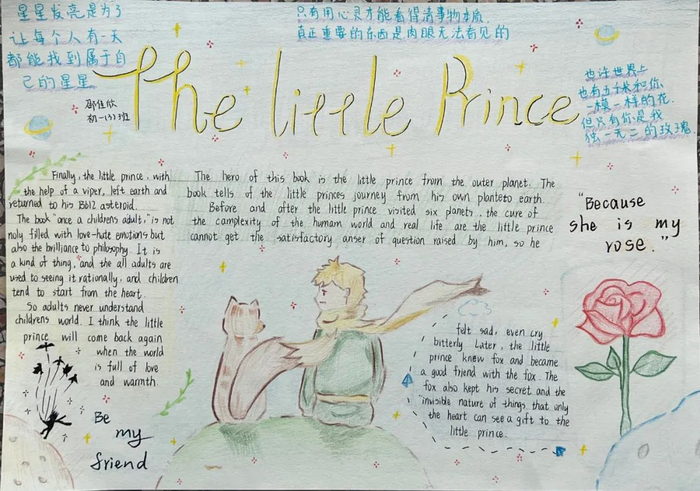 星星发亮是为了
让每个人有一天
都能找到属于自
己的星星
只有用心灵才能看得清事物本质
真正重要的东西是肉眼无法看见的
The little Prince
邵佳欣
初一(3)班
也许世界上
也有五千朵和你
一模一样的花
但只有你是我
独一无二的玫瑰
Finally, the little prince, with
the help of a viper, left earth and
returned to his B612 asteroid.
The book "once a children's adult," is not
noly filled with love-hate emotions but
also the brilliance to philosophy. It is
a kind of thing, and the all adults are
used to seeing it rationally, and children
tend to start from the heart.
So adults never understand
childrens world. I think the little
prince will come back again
when the world
is full of love
and warmth.
The hero of this book is the little prince from the outer planet. The
book tells of the little princes journey from his own planteto earth.
Before and after the little prince visited six planets, the cure of
the complexity of the humam world and real life are the little prince
cannot get the satisfactory anser of question raised by him, so he
"Because
she is my
rose."
felt sad, even cry
bitterly Later, the little
prince knew fox and became
a good friend with the fox. The
fox also kept his secret and the
invisible nature of things that only
the heart can see a gift to the
little prince.
Be
my
friend